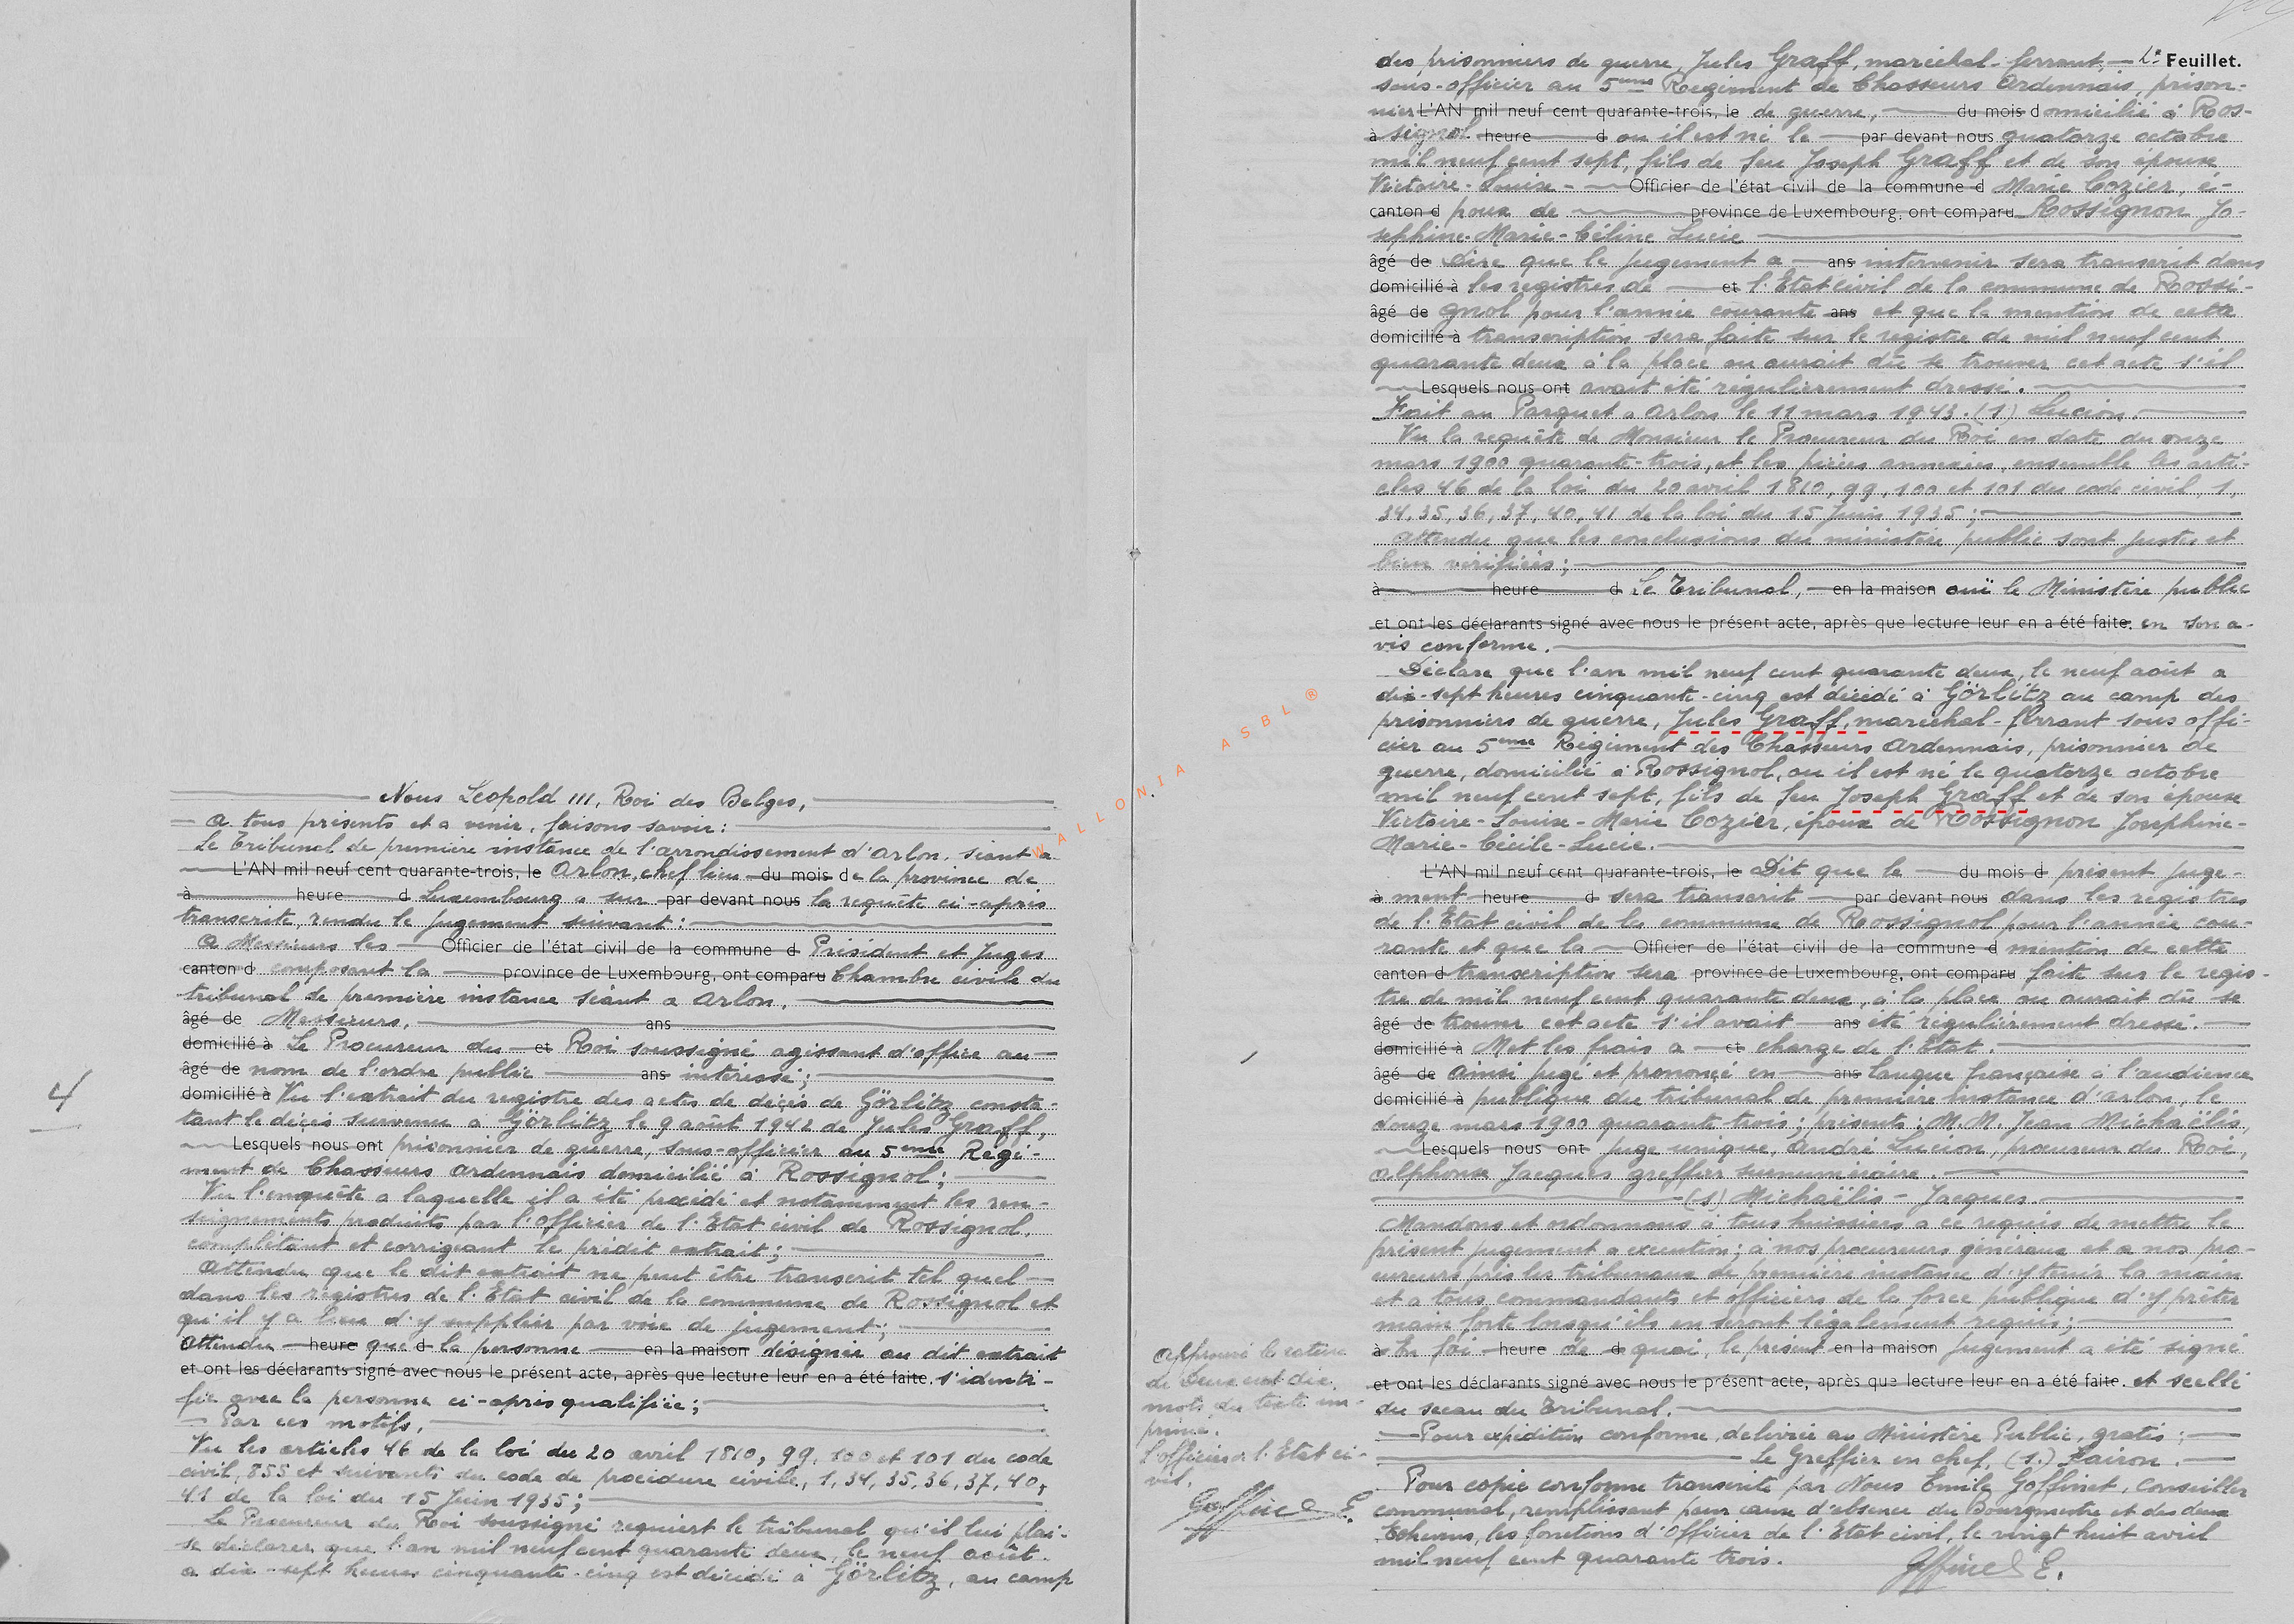 4
Nous Léopold III, Roi des Belges,
A tous présents et a venir, faisons savoir:
Le Tribunal de première instance de l'arrondissement d'Arlon, séant a
L'AN mil neuf cent quarante-trois, le Arlon, chef lieu du mois de la province de
à heure d Luxembourg a sur par devant nous la requete ci-apres
transcrite, rendu le jugement suivant:
A Messieurs les Officier de l'état civil de la commune d Président et Juges
canton d composant la province de Luxembourg, ont comparu Chambre civile du
tribunal de première instance séant a Arlon.
âgé de Messieurs, ans
domicilié à Le Procureur du et Roi soussigné agissant d'office au
âgé de nom de l'ordre public ans intéressé;
domicilié à Vu l'extrait du registre des actes de décès de Görlitz consta-
tant le décès survenu a Görlitz le 9 août 1942 de Jules Graff,
Lesquels nous ont prisonnier de guerre, sous-officier au 5eme Régi-
ment de Chasseurs Ardennais domicilié à Rossignol;
Vu l'enquête a laquelle il a été procédé et notamment les ren-
seignements produits par l'Officier de l'Etat civil de Rossignol,
complétant et corrigeant le prédit extrait;
Attendu que le dit extrait ne peut être transcrit tel quel
dans les registres de l'Etat civil de la commune de Rossignol et
qu'il y a lieu d'y suppléer par voie de jugement;
Attendu heure que d la personne en la maison désignée au dit extrait
et ont les déclarants signé avec nous le présent acte, après que lecture leur en a été faite. s'identi-
fie avec la personne ci-apres qualifiée;
Par ces motifs,
Vu les articles 46 de la loi du 20 avril 1810, 99, 100 et 101 du code
civil, 855 et suivants du code de procédure civile, 1, 34, 35, 36, 37, 40,
41 de la loi du 15 Juin 1935;
Le Procureur du Roi soussigné requiert le tribunal qu'il lui plai-
se déclarer que l'an mil neuf cent quarante deux, le neuf août
a dix-sept heures cinquante-cinq est décédé à Görlitz, au camp
WALLONIA ASBL ®
des prisonniers de guerre, Jules Graff, maréchal-ferrant, Feuillet.
sous-officier au 5eme Régiment de Chasseurs Ardennais, prison-
nier L'AN mil neuf cent quarante-trois, le de guerre, du mois d omicilié à Ros-
à signol heure d ou il est né le par devant nous quatorze octobre
mil neuf cent sept, fils de feu Joseph Graff et de son épouse
Victoire-Louise- Officier de l'état civil de la commune d Marie Cozier, é-
canton d poux de province de Luxembourg, ont comparu Rossignon Jo-
sephine-Marie-Céline Lucie
âgé de Dire que le jugement a ans intervenir sera transcrit dans
domicilié à les registres de et l'Etat civil de la commune de Rossi-
âgé de gnol pour l'année courante ans et que la mention de cette
domicilié à transcription sera faite sur le registre de mil neuf cent
quarante deux à la place ou aurait dû se trouver cet acte s'il
Lesquels nous ont avait été régulièrement dressé.
Fait au Parquet a Arlon le 11 mars 1943. (1) Lucion
Vu la requête de Monsieur le Procureur du Roi en date du onze
mars 1900 quarante-trois, et les pièces annexées, ensemble les arti-
cles 46 de la loi du 20 avril 1810, 99, 100 et 101 du code civil, 1,
34, 35, 36, 37, 40, 41 de la loi du 15 Juin 1935;
Attendu que les conclusions du ministère public sont justes et
bien vérifiées;
à heure d Le Tribunal, en la maison ouï le Ministère public
et ont les déclarants signé avec nous le présent acte, après que lecture leur en a été faite. en son a-
vis conforme.
Déclare que l'an mil neuf cent quarante deux, le neuf août a
dix-sept heures cinquante-cinq est décédé à Görlitz au camp des
prisonniers de guerre, Jules Graff, maréchal-ferrant sous offi-
cier au 5eme Régiment des Chasseurs Ardennais, prisonnier de
guerre, domicilié à Rossignol, ou il est né le quatorze octobre
mil neuf cent sept, fils de feu Joseph Graff et de son épouse
Victoire-Louise-Marie Cozier, époux de Rossignon Josephine-
Marie-Cécile-Lucie.
L'AN mil neuf cent quarante-trois, le Dit que le du mois d présent juge-
à ment heure d sera transcrit par devant nous dans les registres
de l'Etat civil de la commune de Rossignol pour l'année cou-
rante et que la Officier de l'état civil de la commune d mention de cette
canton d transcription sera province de Luxembourg, ont comparu faite sur le regis-
tre de mil neuf cent quarante deux, à la place ou aurait dû se
âgé de trouver cet acte s'il avait ans été régulièrement dressé.
domicilié à Met les frais a et charge de l'Etat.
âgé de Ainsi jugé et prononcé en ans langue française à l'audience
domicilié à publique du tribunal de première instance d'Arlon, le
douze mars 1900 quarante-trois; présents: M.M. Jean Michaëlis,
Lesquels nous ont juge unique, André Lucion, procureur du Roi,
Alphonse Jacques greffier surnuméraire.
(s) Michaëlis - Jacques
Mandons et ordonnons à tous huissiers a ce requis de mettre le
présent jugement a exécution; à nos procureurs généraux et a nos pro-
cureurs près les tribunaux de première instance d'y tenir la main
et a tous commandants et officiers de la force publique d'y prêter
main forte lorsqu'ils en seront légalement requis;
à En foi heure de d quoi, le présent en la maison jugement a été signé
et ont les déclarants signé avec nous le présent acte, après que lecture leur en a été faite. et scellé
du sceau du Tribunal.
Pour expédition conforme délivrée au Ministère Public, gratis;
Le Greffier en chef, (1.) Fairon.
Pour copie conforme transcrite par Nous Emile Goffinet, conseiller
communal, remplissant pour cause d'absence du Bourgmestre et des deux
Echevins, les fonctions d'Officier de l'Etat civil, le vingt huit avril
mil neuf cent quarante trois.
Goffinet E.
Approuvé la rature
de deux cent dix
mots du texte im-
primé.
L'officier d. l'Etat ci-
vil,
Goffinet E.